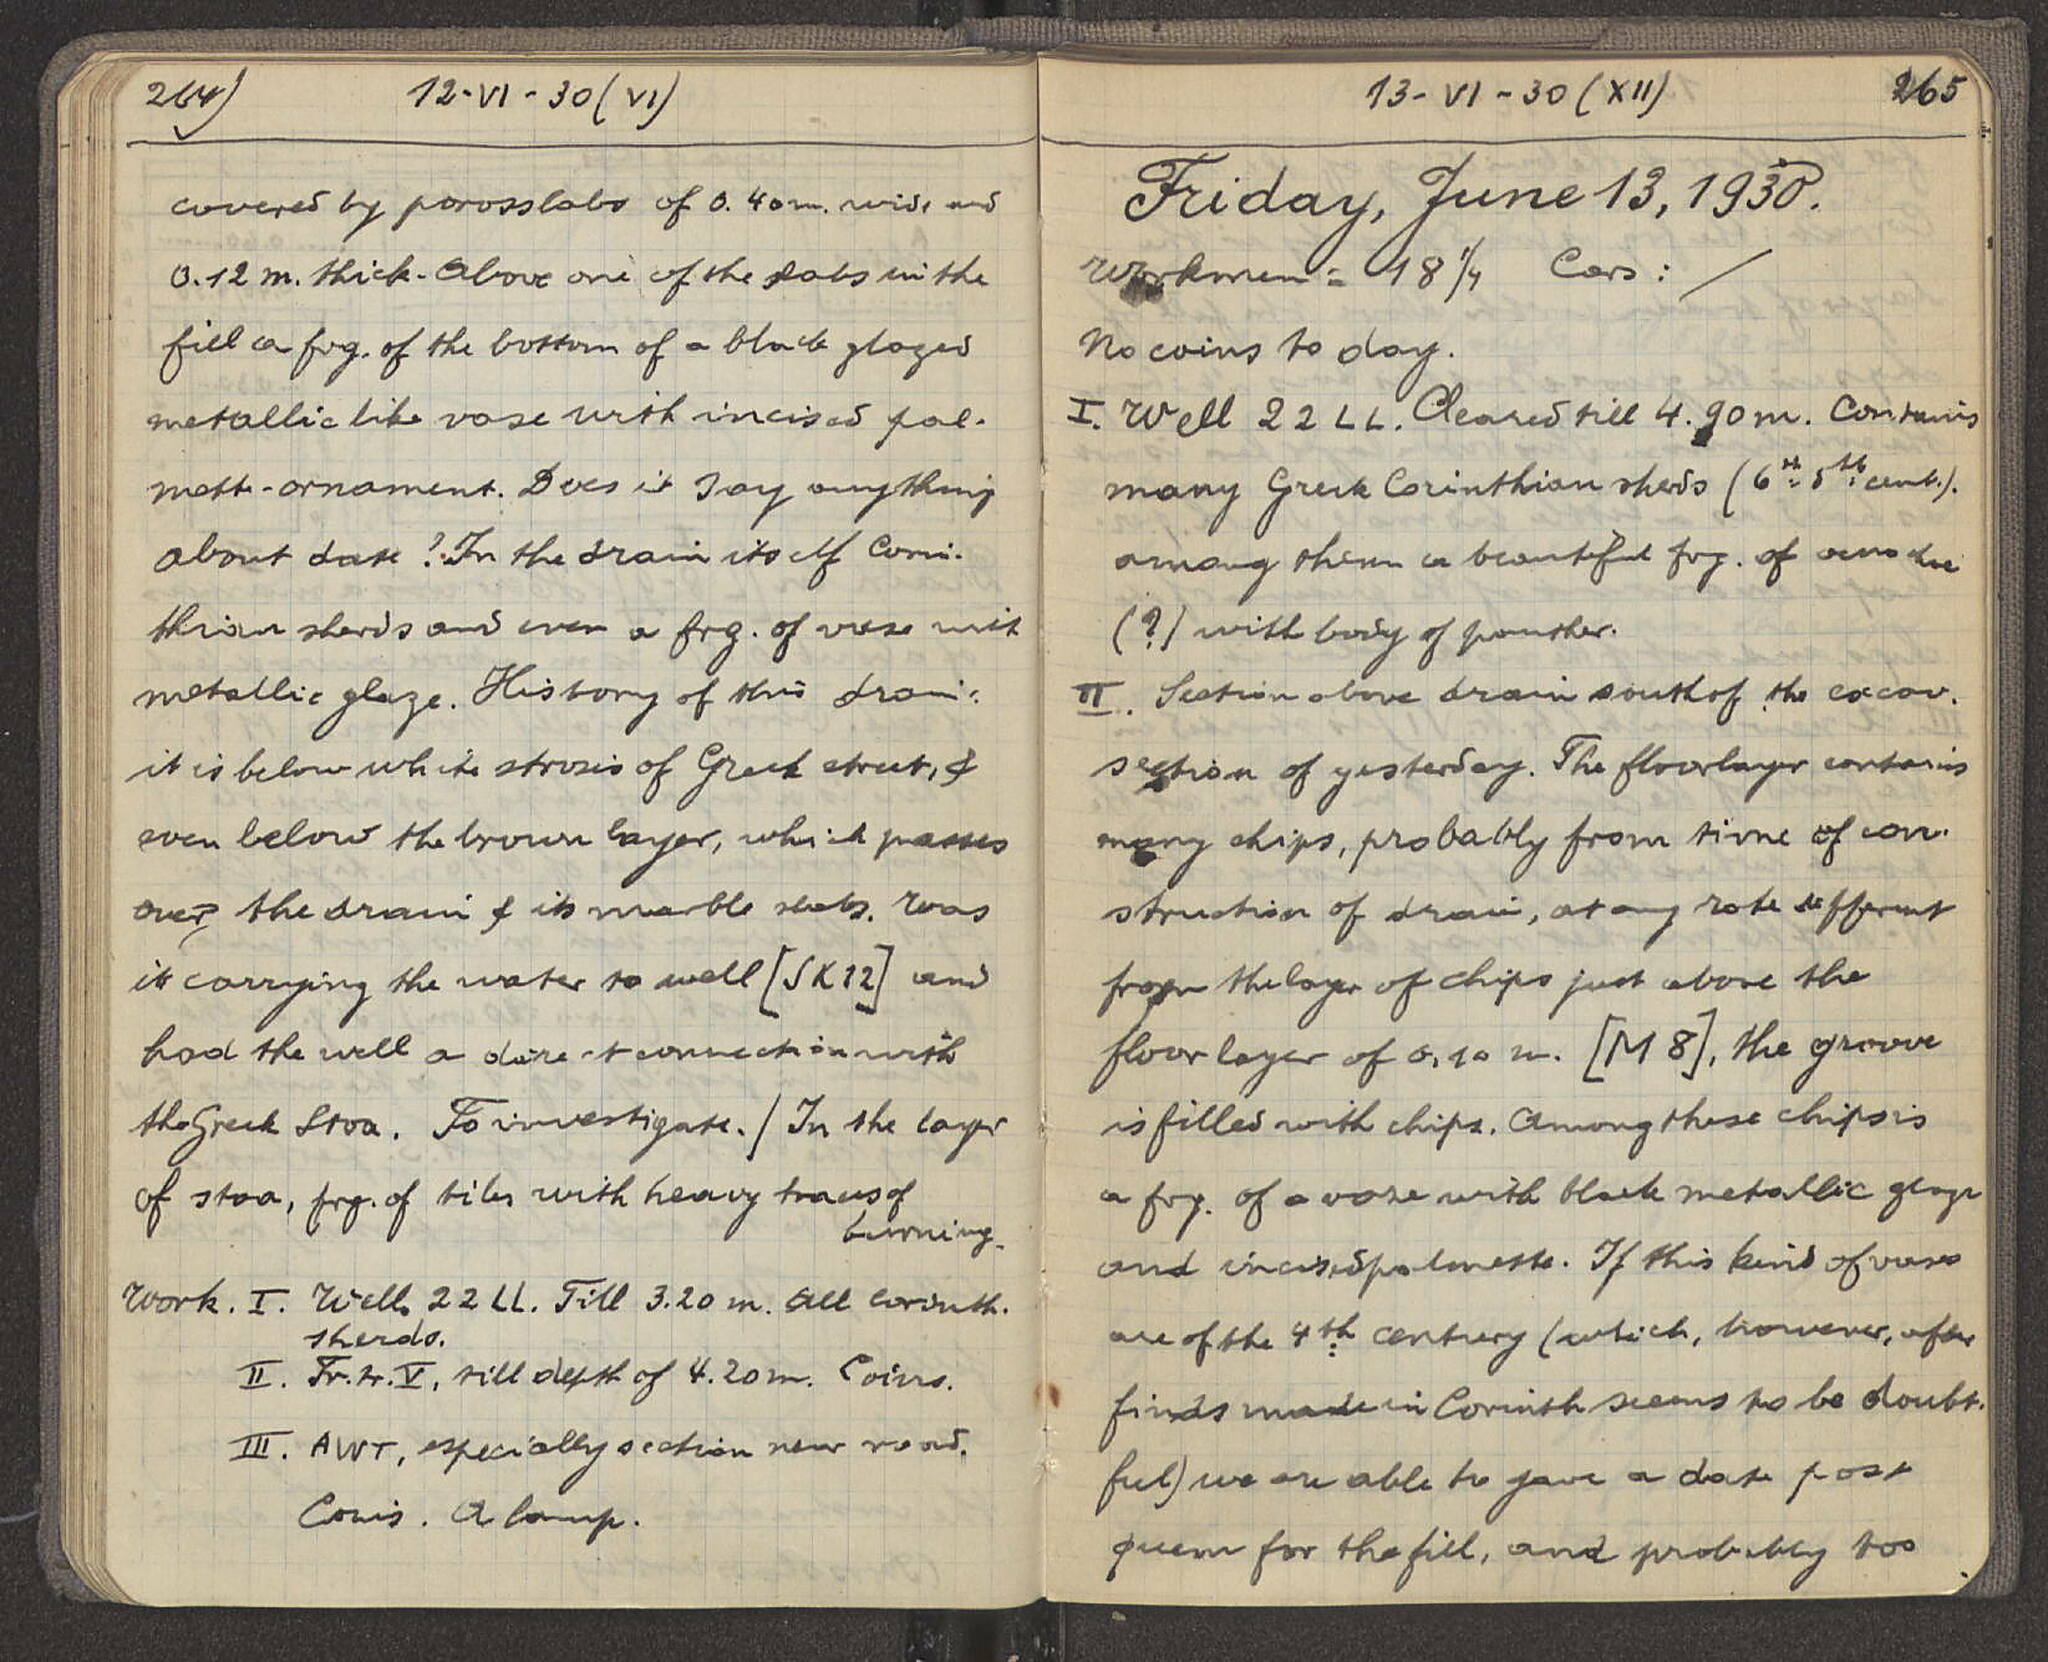 264) 12-VI-30 (VI)
covered by porosslabs of 0.40m. wide and
0.12 m. thick. Above one of the slabs in the
fill a frg. of the bottom of a black glazed
metallic like vase with incised pal-
mett-ornament. Does it say anything
about date? In the drain itself Corin-
thian sherds and even a frg. of vase with
metallic glaze. History of this drain:
it is below white strosis of Greek street, &
even below the brown layer, which passes
over the drain & its marble slabs. Was
it carrying the water to well [SK12] and
had the well a direct connection with
the Greek Stoa. To investigate. / In the layer
of stoa, frg. of tiles with heavy traces of
burning.
Work. I. Well 22 LL. Till 3.20 m. All Corinth.
sherds.
II. Tr. tr. V, till depth of 4.20m. Coins.
III. AWT, especially section near road.
Coins. A lamp.
13-VI-30 (XII) 265
Friday, June 13, 1930.
Workmen = 18 1/4 Cars: /
No coins to day.
I. Well 22 LL. Cleared till 4.90m. Contains
many Greek Corinthian sherds (6th-5th cent.).
among them a beautiful frg. of oenochoe
(?) with body of panther.
II. Section above drain south of the excav.
section of yesterday. The floorlayer contains
many chips, probably from time of con-
struction of drain, at any rate different
from the layer of chips just above the
floorlayer of 0.10 m. [M 8], the groove
is filled with chips. Among these chips is
a frg. of a vase with black metallic glaze
and incised palmette. If this kind of vases
are of the 4th century (which, however, after
finds made in Corinth seems to be doubt-
ful) we are able to gave a date post
quem for the fill, and probably too